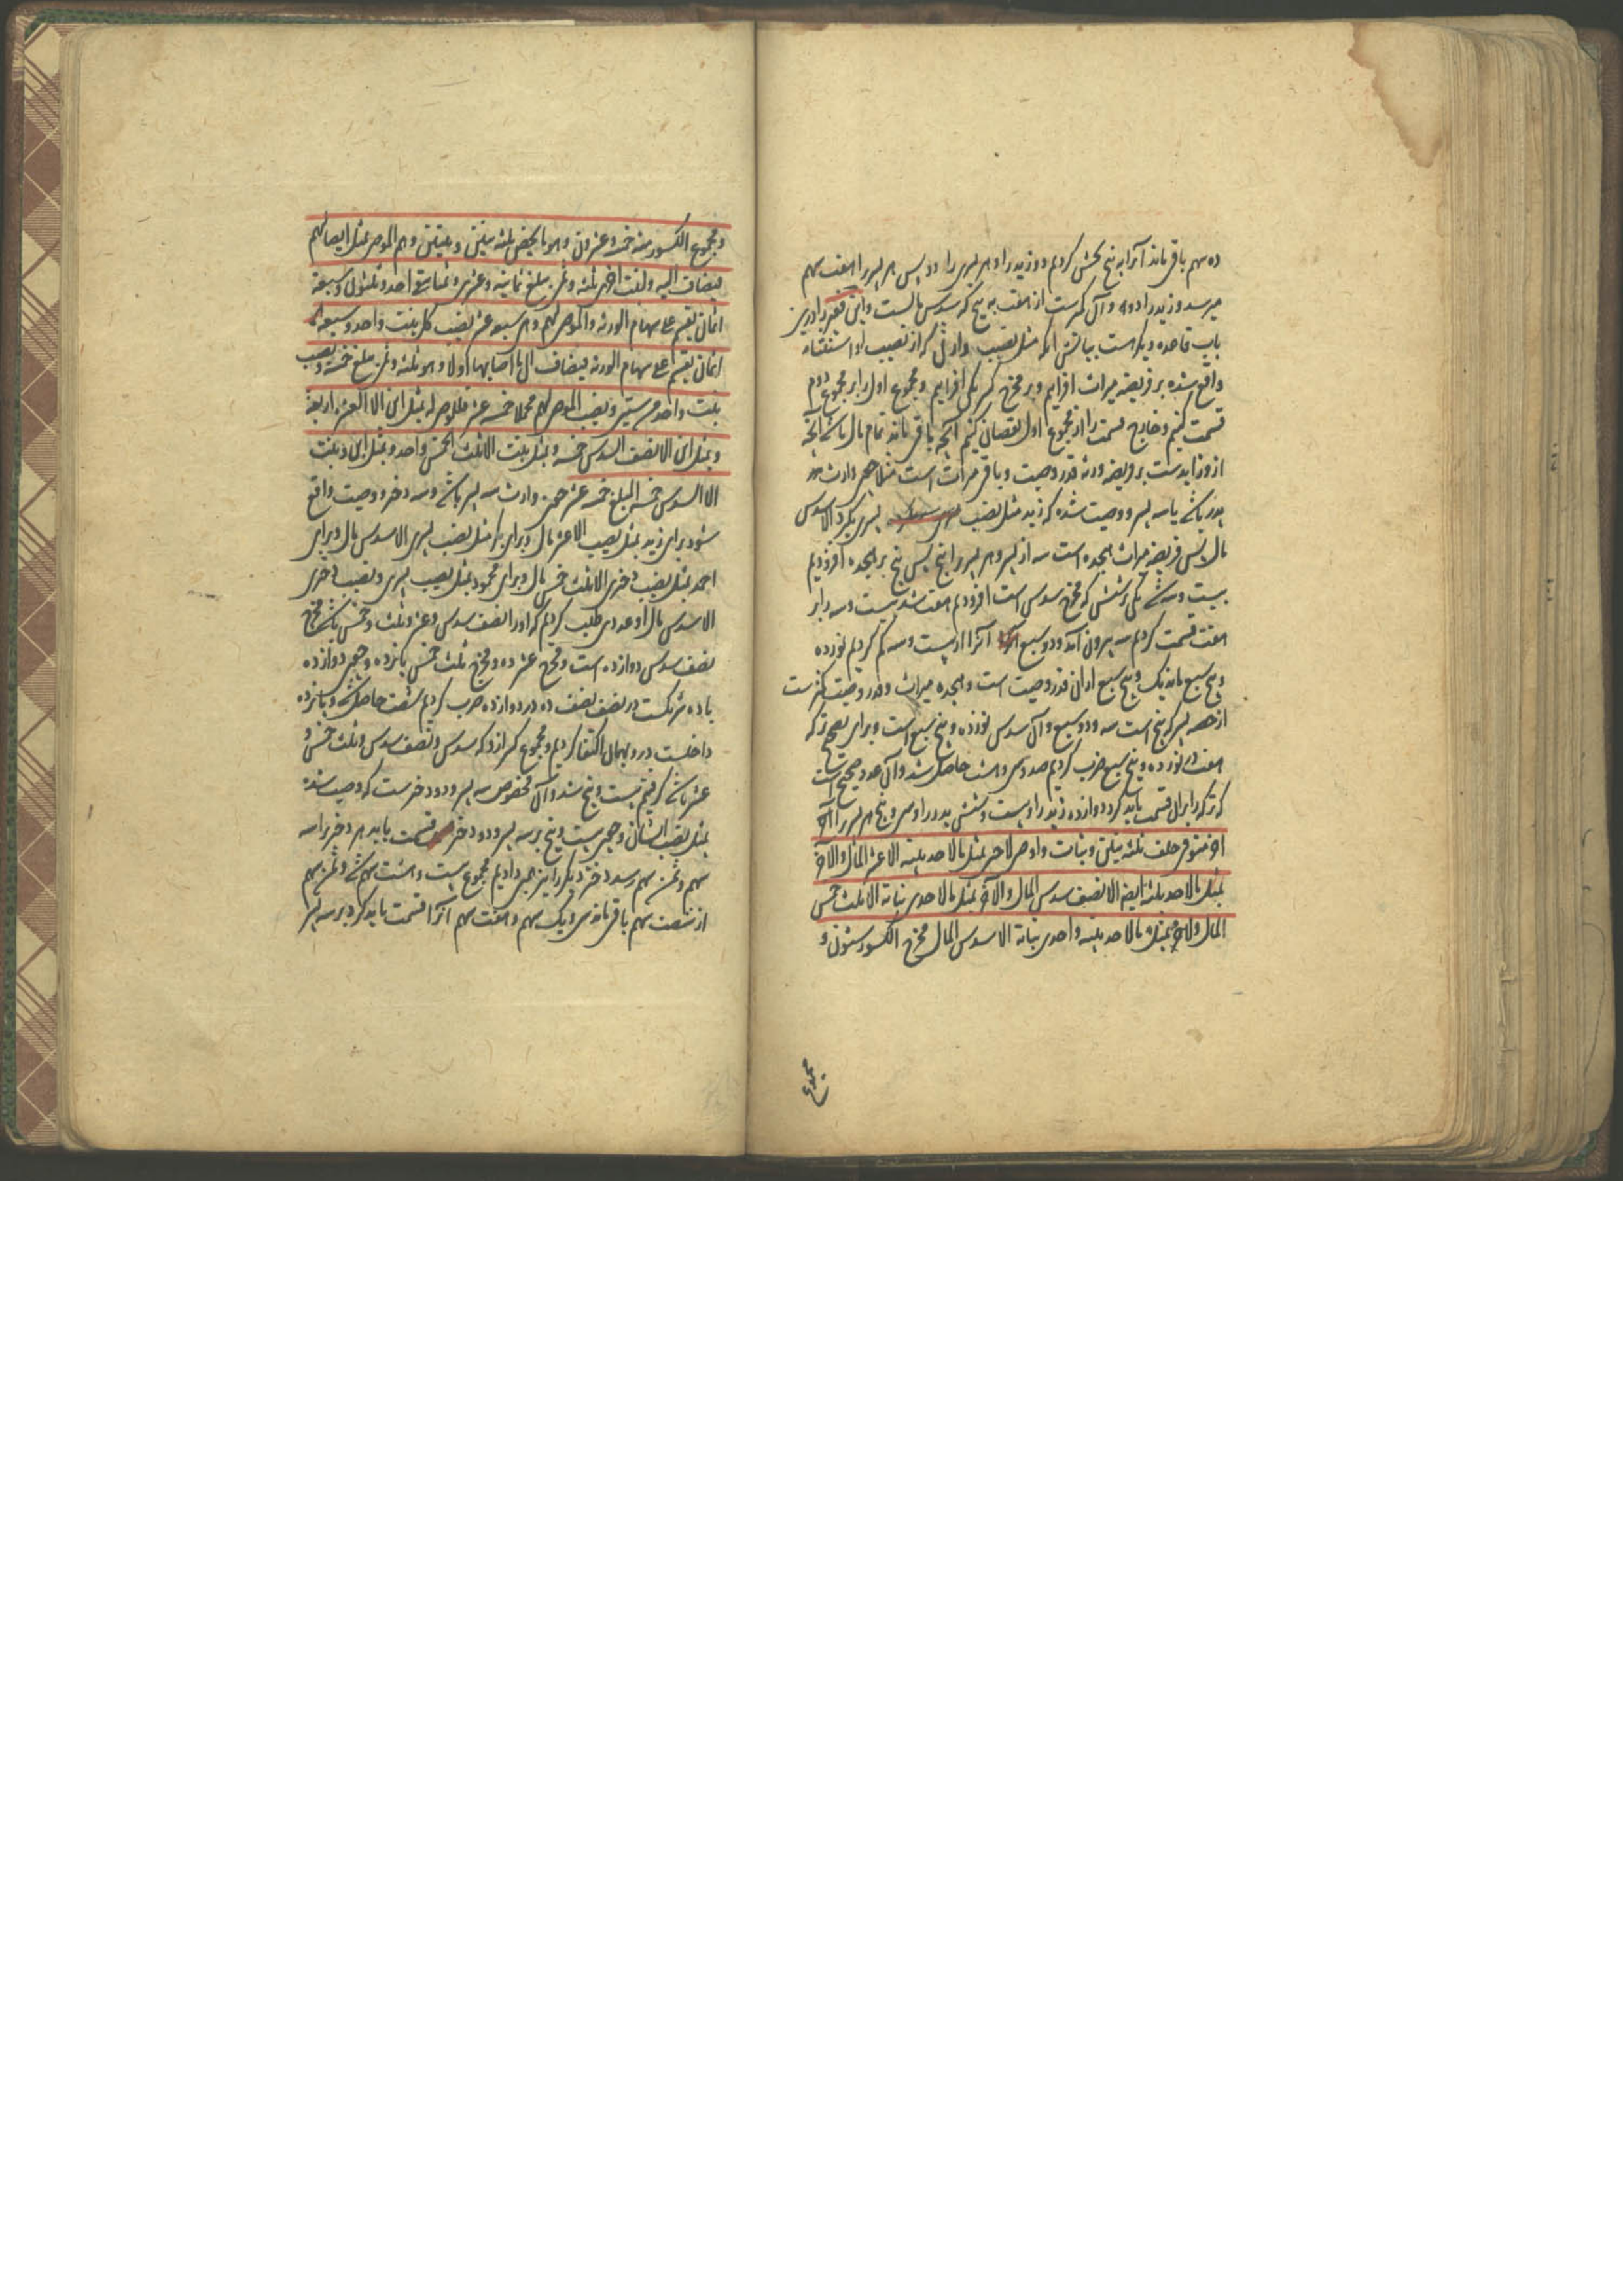 ده سهم باقی ماند آنرا به پنج بخش کردیم دو زید را و هر پسری را دو پس هر پسر را هفت سهم
میرسد و زید را دو و آن کمترست از هفت به پنج که سدس مالست و این فقیر را درین
باب قاعده دیگر است بیانش آنکه مثل نصیب وارثی که از نصیب او استثناء
واقع شده بر فریضه میراث افزایم و بر مخرج کسر یکی افزایم و مجموع اول را بر مجموع دوم
قسمت کنیم و خارج قسمت را از مجموع اول نقصان کنیم آنچه باقی ماند تمام مال باشد آنچه
ازو زایدست بر فریضه ورثه قدر وصیت و باقی میراث است مثلا وارث
پدر باشد با سه پسر و وصیت شده که زید مثل نصیب پسری بگیرد الا سدس
مال پس فریضه میراث هجده است سه از پدر و هر پسر را پنج پس پنج بر هجده افزودیم
بیست و سه شد یکی بر شش که مخرج سدس است افزودیم هفت شد بیست و سه را بر
هفت قسمت کردیم سه بیرون آمد و دو سبع آنرا از بیست و سه کم کردیم نوزده
و پنج سبع ماند یک و پنج سبع ازان قدر وصیت است و هجده میراث و قدر وصیت کمترست
از حصه پسر که پنج است سه و دو سبع و آن سدس نوزده و پنج سبع است و برای تصحیح ترکه
هفت در نوزده و پنج سبع ضرب کردیم صد و سی و هشت حاصل شد و آن عدد صحیح است
که ترکه را بران قسمت باید کرد دوازده زید را و بیست و شش پدر را و سی و پنج هر پسر را
متوفی خلف ثلثة بنین و بنات و اوصی لاحد بمثل ما لاحد بنیه الا عشر المال و لآخر
بمثل ما لاحد بنیه ایضا الا نصف سدس المال و لآخر بمثل ما لاحدی بناته الا ثلث خمس
المال و لآخر بمثل ما لاحد بنیه و احدی بناته الا سدس المال مخرج الکسور ستون و
مجموع
و مجموع الکسور منه خمسة و عشرون و هو ما یخص ثلثة بنین و بنتین و هم الموصی بمثل انصبائهم
فیضاف الیه و لبنت اخری ثلثة و ثمن یبلغ ثمانیة و عشرین و ثمنا یبقی احد و ثلثون و سبعة
اثمان یقسم علی سهام الورثة و الموصی لهم و هی سبعة عشر نصیب کل بنت واحد و سبعة
اثمان یقسم علی سهام الورثة فیضاف الی ما اصابها اولا و هو ثلثة و ثمن یبلغ خمسة و نصیب
بنت واحد من ستین و نصیب الموصی لهم مجملا خمسة عشر فللموصی له بمثل ابن الا العشر اربعة
و بمثل ابن الا نصف السدس خمسة و بمثل بنت الا ثلث الخمس واحد و بمثل ابن و بنت
الا السدس خمسة المبلغ خمسة عشر وارث سه پسر باشد و سه دختر و وصیت واقع
شود برای زید بمثل نصیب الا عشر مال و برای بکر مثل نصیب پسری الا سدس مال و برای
احمد بمثل نصیب دختری الا ثلث خمس مال و برای محمود بمثل نصیب پسری و نصیب دختری
الا سدس مال او عددی طلب کردیم که او را نصف سدس و عشر و ثلث و خمس باشد مخرج
نصف سدس دوازده است و مخرج عشر ده و مخرج ثلث خمس پانزده و چون دوازده
با ده شریکست در نصف نصف ده در دوازده ضرب کردیم شصت حاصل شد و پانزده
داخلست درو بهمان اکتفا کردیم و مجموع کسر ازو که سدس و نصف سدس و ثلث خمس و
عشر باشد گرفتیم بیست و پنج شد و آن مخصوص سه پسر و دو دخترست که وصیت شده
بمثل نصیب ایشان و چون بیست و پنج بر سه پسر و دو دختر قسمت یابد هر دختر را سه
سهم و ثمن سهم رسد دختر دیگر را نیز همین دادیم مجموع بیست و هشت سهم شد و ثمن سهم
از شصت سهم باقی ماند سی و یک سهم و هفت سهم آنرا قسمت باید کرد بر سه پسر